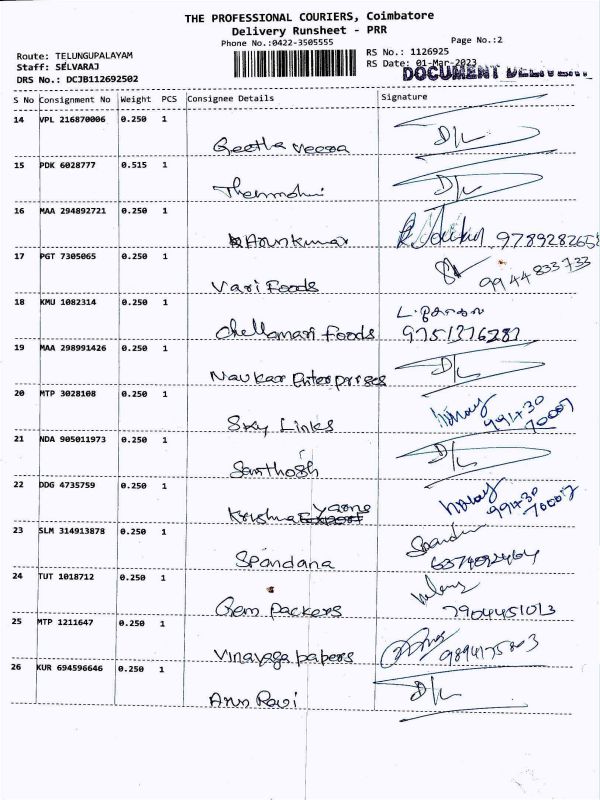 THE PROFESSIONAL COURIERS, Coimbatore
Delivery Runsheet - PRR
Phone No.:0422-3505555
Page No.:2
Route: TELUNGUPALAYAM
RS No.: 1126925
Staff: SELVARAJ
RS Date: 01-Mar-2023
DRS No.: DCJB112692502
DOCUMENT
S No Consignment No Weight PCS Consignee Details Signature
14 VPL 216870006 0.250 1
Geetha Veera D/L
15 PDK 6028777 0.515 1
D/L
16 MAA 294892721 0.250 1
Arunkumar
17 PGT 7305065 0.250 1
Vari Foods 9944833733
18 KMU 1082314 0.250 1
Chellamari Foods 9751376287
19 MAA 298991426 0.250 1
Navkar Enterprises D/L
20 MTP 3028108 0.250 1
Sky Links 99430 70007
21 NDA 905011973 0.250 1
Santhosh D/L
22 DDG 4735759 0.250 1
Krishna Yarns 99430 70007
23 SLM 314913878 0.250 1
Spandana 6374092464
24 TUT 1018712 0.250 1
Gem Packers 7904451013
25 MTP 1211647 0.250 1
Vinayaga papers
26 KUR 694596646 0.250 1
Arun Ravi D/L